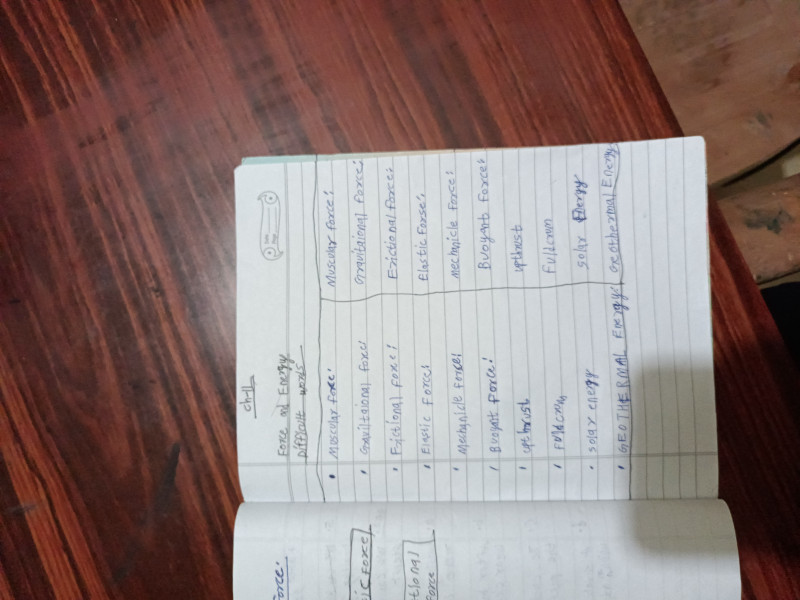 ch-11
Force and Energy
Difficult words
• Muscular force: Muscular force:
• Gravitaional force: Gravitaional force:
• Frictional force: Frictional force:
• Elastic Force: Elastic Forse:
• Mechanicle force: Mechanicle force:
• Buoyant force: Buoyant force:
• upthrust upthrust
• Fuldcrum Fuldcrum
• solar energy solar Energy
• GEOTHERMAL Energy Geothermal Energy
orce:
IC FORCE
tional
orce